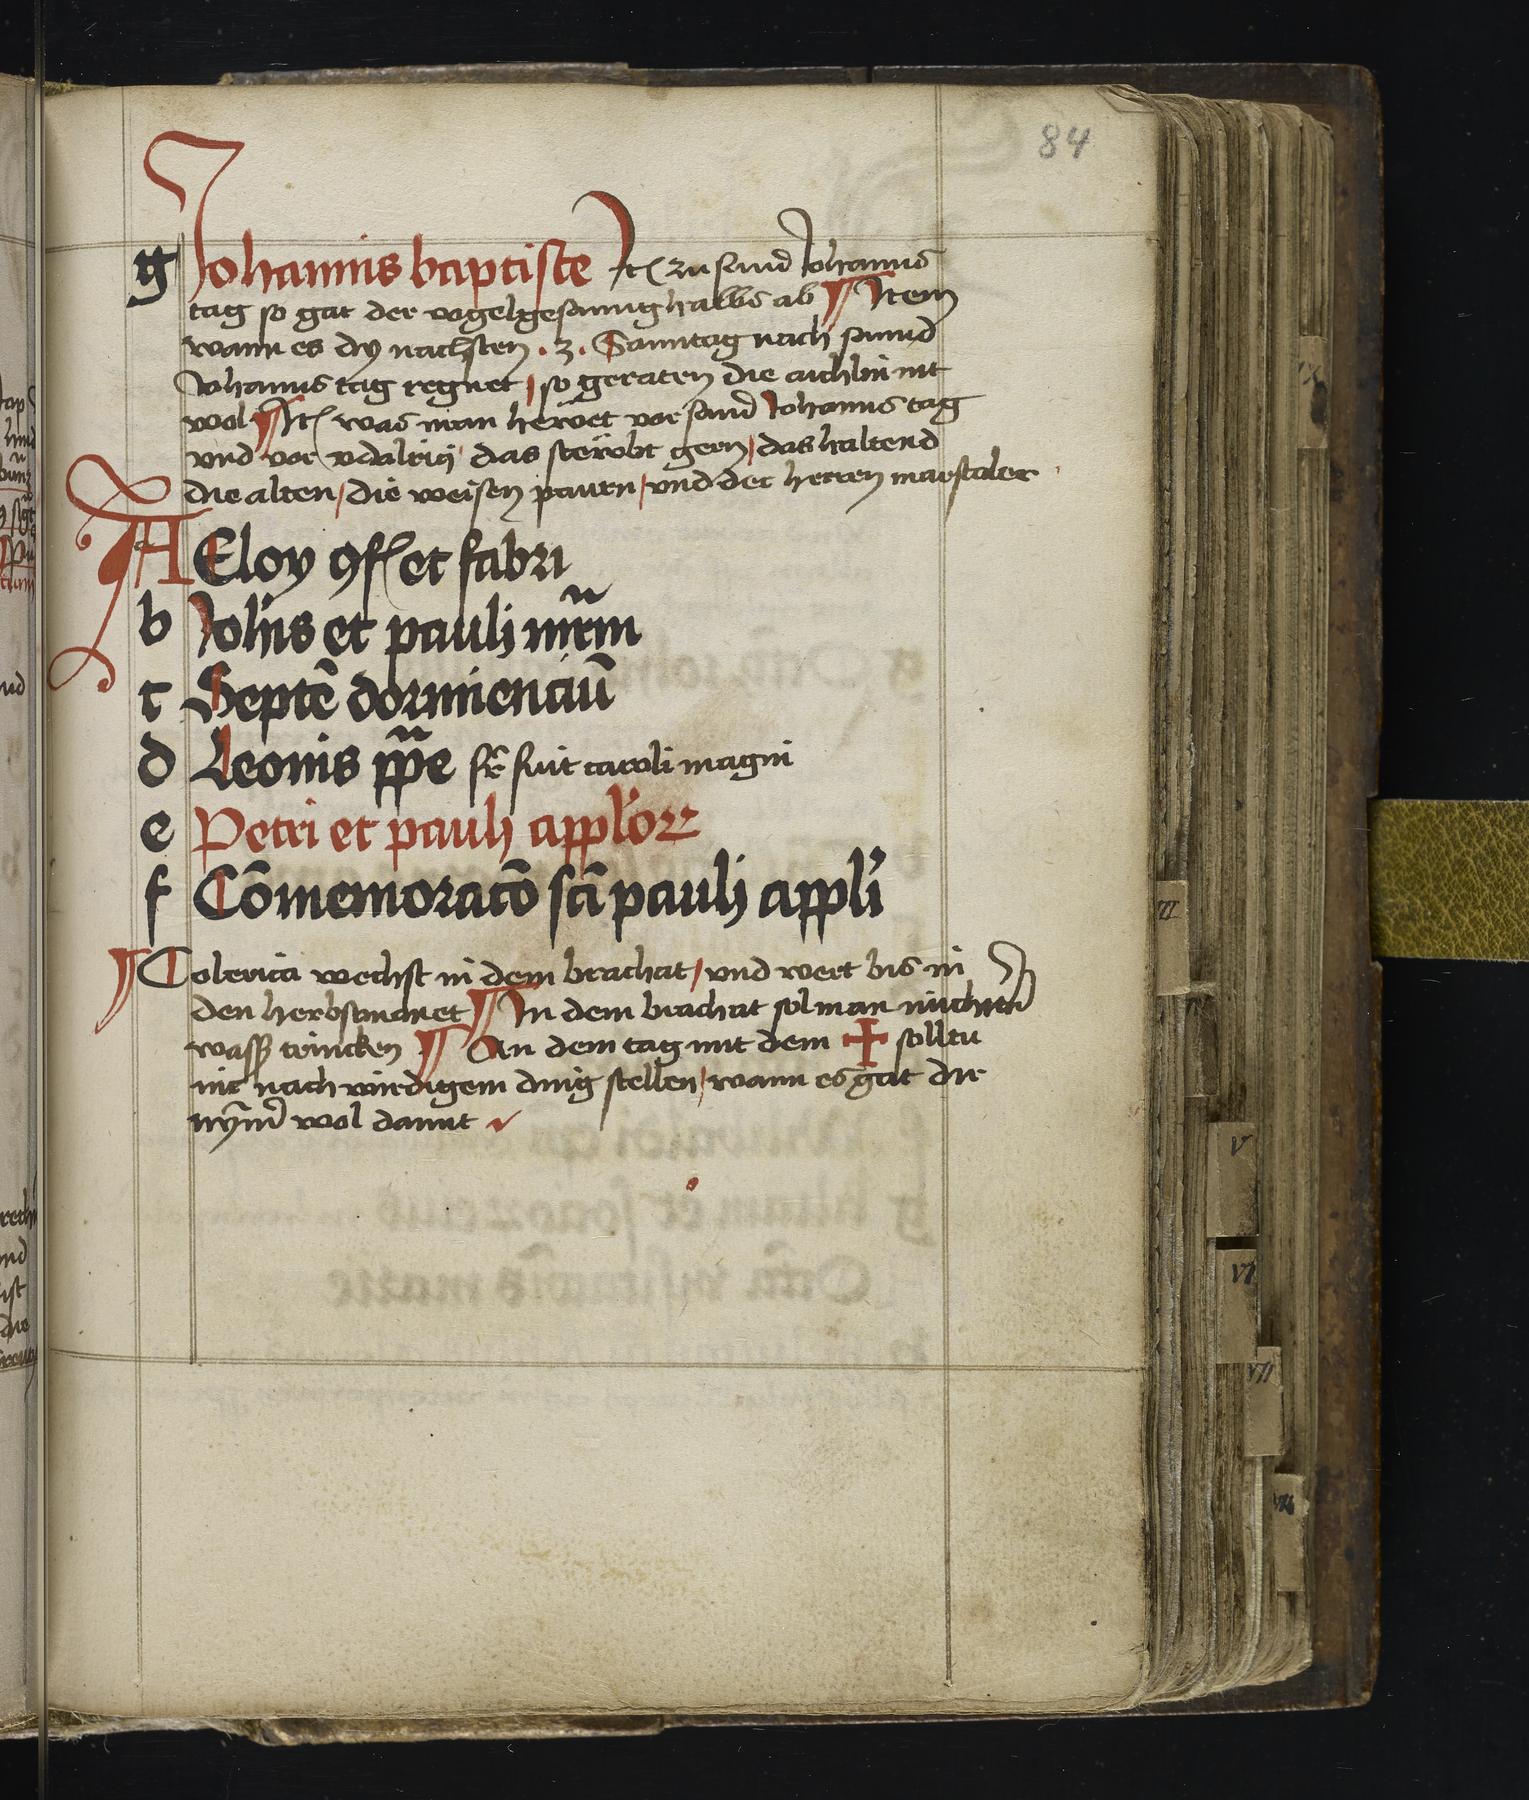 84
g Johannis baptiste Itē zu sand Johanns
tag so gat der vogelgesanng halbs ab ¶ Item
wann es dy nachsten .3. Sonntag nach sannd
Johanns tag regnet / so geraten die aichlin nit
wol ¶ Itē was man hewet vor sand Johanns tag
vnd vor vdalrici das sterobt gern / das haltend
die alten / die weisen paurn / vnd der herren marstaler
A Eloy 9f et fabri
b Joh̄is et pauli mr̄m
c Septē dormienciū
d Leonis pp̄e fr̄ fuit caroli magni
e Petri et pauli appl'oꝝ
f Cōmemoracō sc̄i pauli appl'i
¶ Colerica wechst in dem brachat / vnd wert bis in
den herbstmanet ¶ In dem brachat sol man nüchtern
wasß trincken ¶ An dem tag mit dem ✝ solltu
nit nach wirdigem ding stellen / wann es gat dir
nym̄ wol damit
II
V
VI
VII